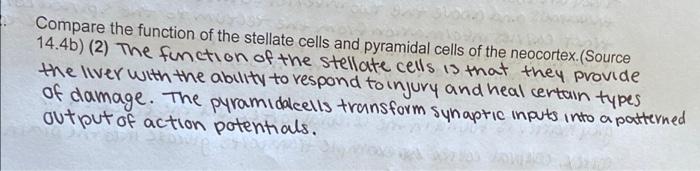 Compare the function of the stellate cells and pyramidal cells of the neocortex.(Source
14.4b) (2) The function of the stellate cells is that they provide
the liver with the ability to respond to injury and heal certain types
of damage. The pyramidalcells transform synaptic inputs into a patterned
output of action potentials.